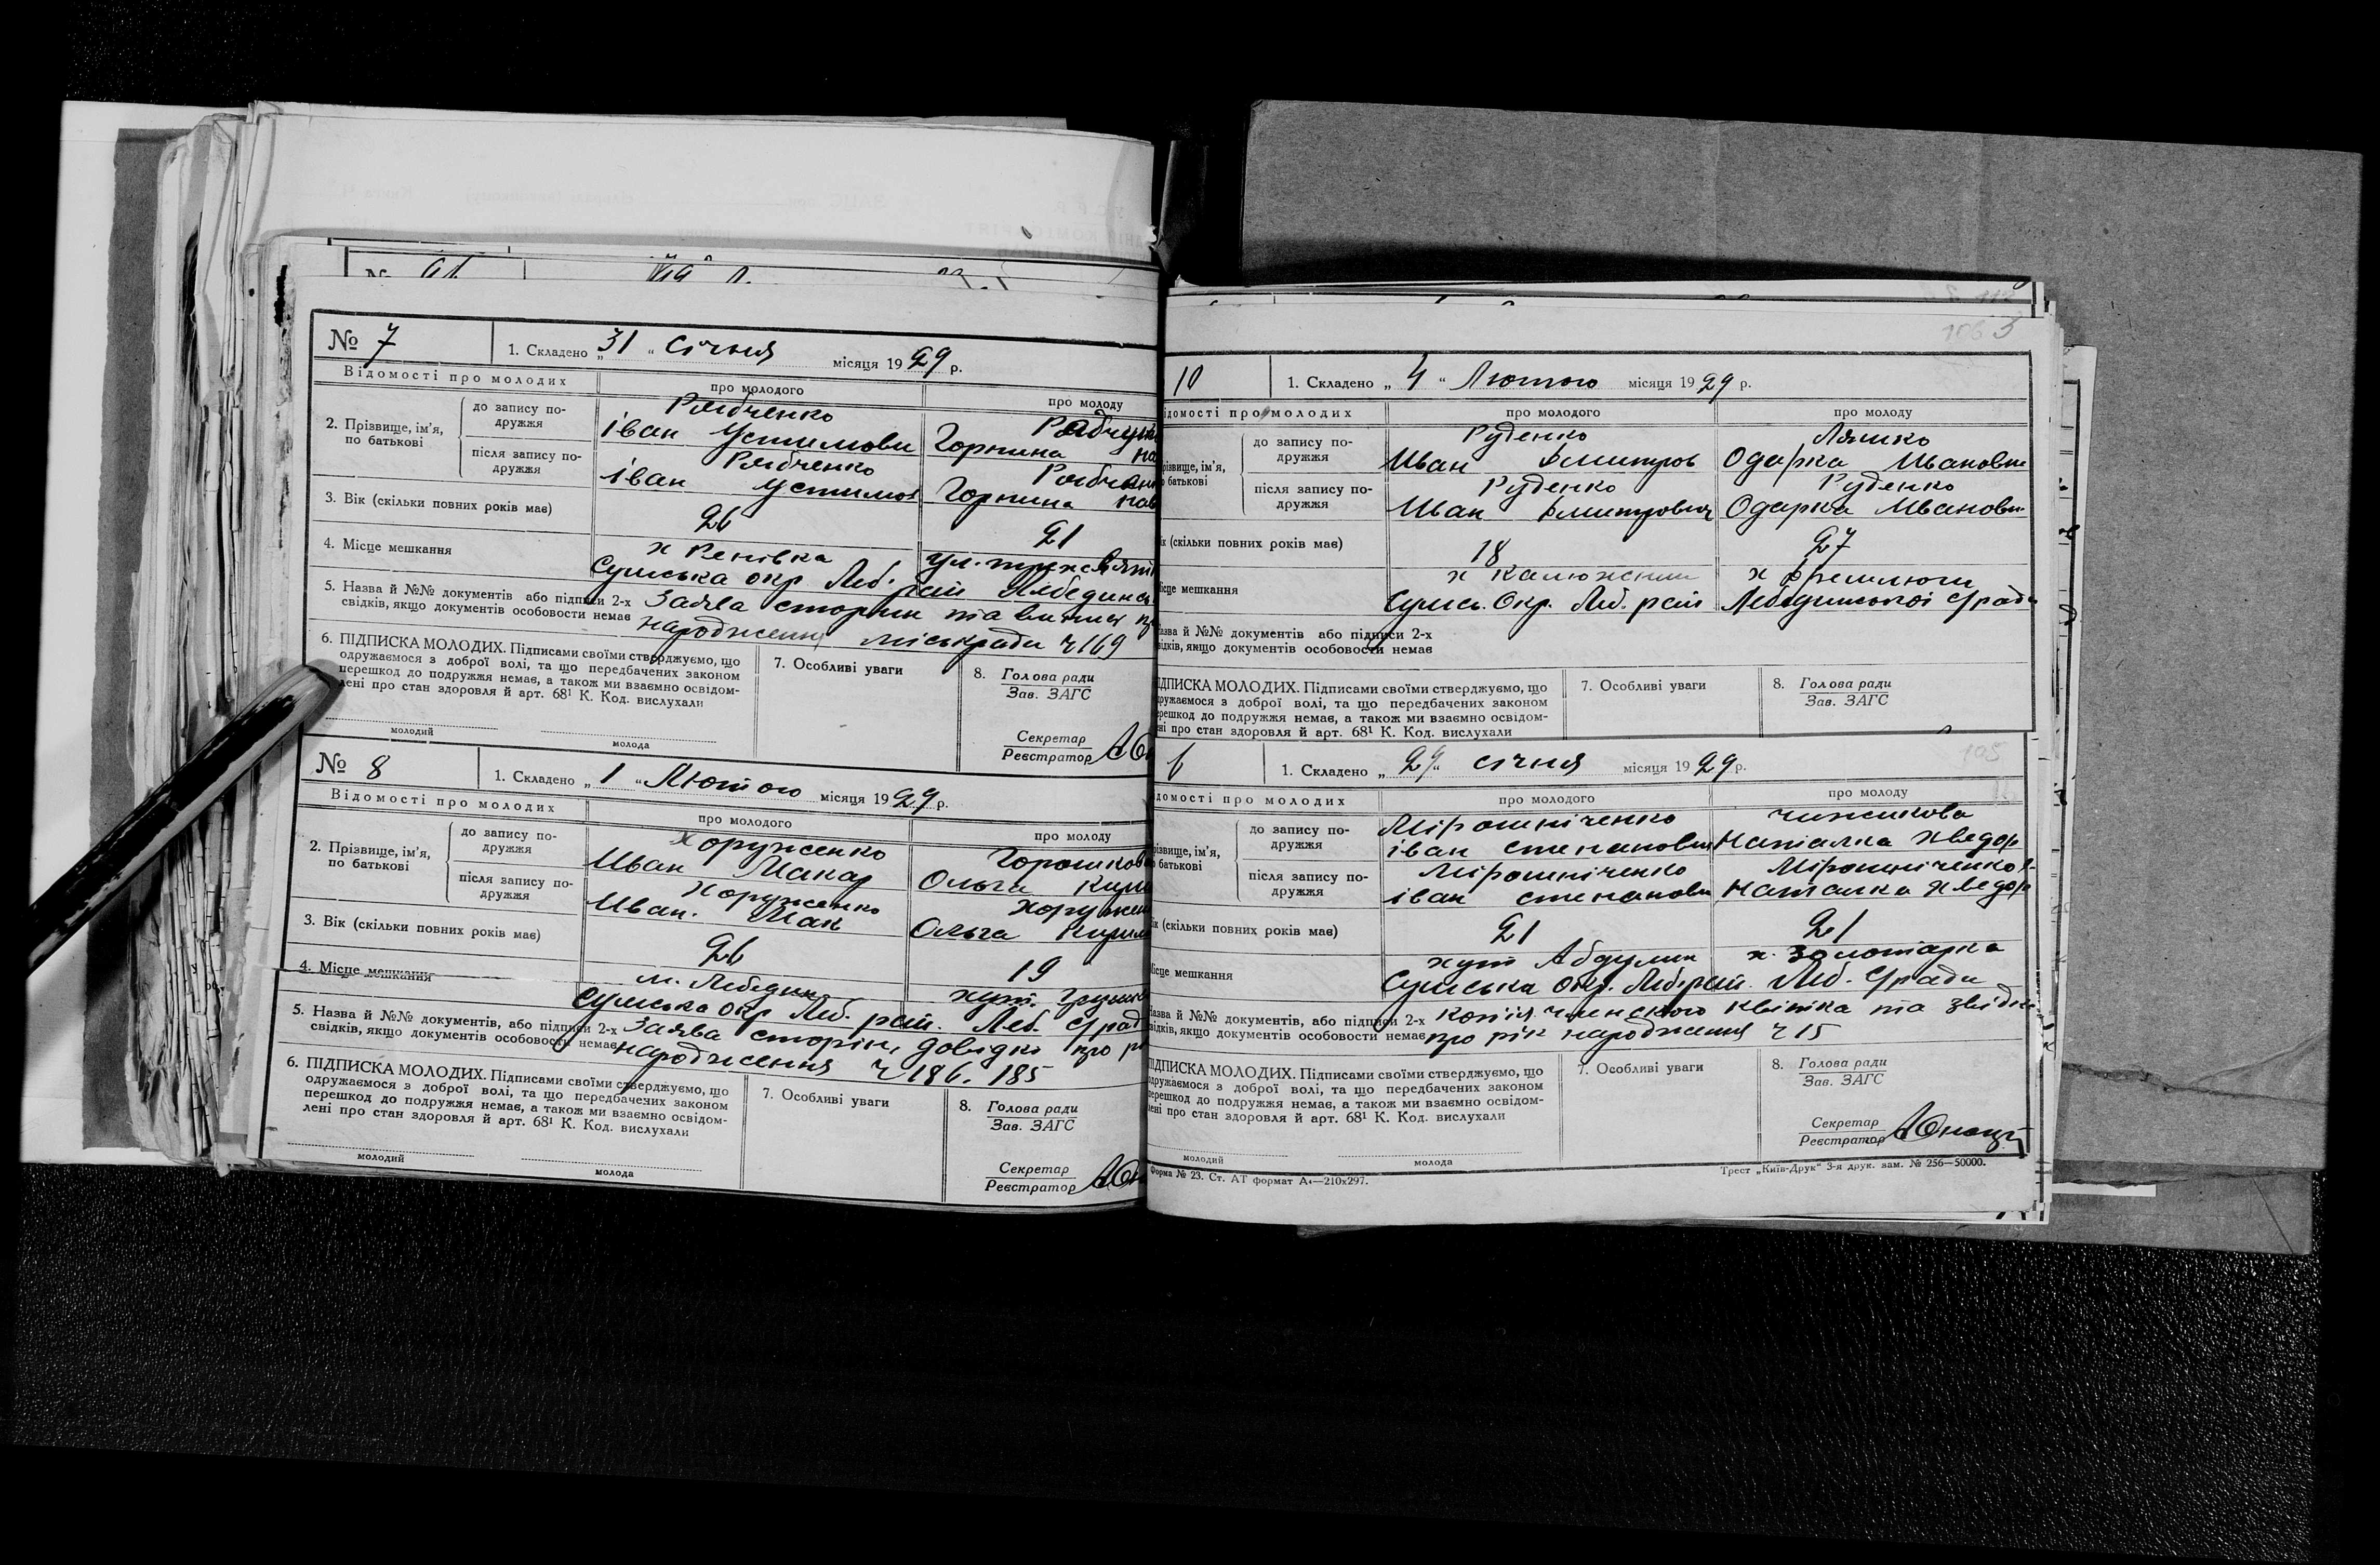 № 7
1. Складено „ 31 “ Січня місяця 1929 р.
Відомості про молодих
про молодого
про молоду
2. Прізвище, ім'я, по батькові
до запису по-
дружжя
Рябченко
іван Устимови
Горпина
після запису по-
дружжя
Рябченко
іван Устимов
Горпина
3. Вік (скільки повних років має)
26
21
4. Місце мешкання
х Ренівка
Сумська окр Леб. рай
5. Назва й №№ документів або підписи 2-х
свідків, якщо документів особовости немає
Заява сторін та
народження міськради ч 169
6. ПІДПИСКА МОЛОДИХ. Підписами своїми стверджуємо, що
одружаємося з доброї волі, та що передбачених законом
перешкод до подружжя немає, а також ми взаємно освідом-
лені про стан здоровля й арт. 68¹ К. Код. вислухали
молодий
молода
7. Особливі уваги
8. Голова ради
Зав. ЗАГС
Секретар
Реєстратор
№ 8
1. Складено „ 1 “ Лютого місяця 1929 р.
Відомості про молодих
про молодого
про молоду
2. Прізвище, ім'я,
по батькові
до запису по-
дружжя
Хоруженко
Иван Макар
Горошков
Ольга
після запису по-
дружжя
Хоруженко
Иван. Мак
Хоружен
Ольга
3. Вік (скільки повних років має)
26
19
4. Місце мешкання
м. Лебедин
Сумська окр Леб. рай.
хут.
Леб. С/рад
5. Назва й №№ документів, або підписи 2-х
свідків, якщо документів особовости немає
Заява сторін, довідки про
народження ч 186. 185
6. ПІДПИСКА МОЛОДИХ. Підписами своїми стверджуємо, що
одружаємося з доброї волі, та що передбачених законом
перешкод до подружжя немає, а також ми взаємно освідом-
лені про стан здоровля й арт. 68¹ К. Код. вислухали
молодий
молода
7. Особливі уваги
8. Голова ради
Зав. ЗАГС
Секретар
Реєстратор
10
1. Складено „ 4 “ Лютого місяця 1929 р.
ідомості про молодих
про молодого
про молоду
різвище, ім'я,
о батькові
до запису по-
дружжя
Руденко
Иван Дмитров
Ляшко
Одарка Ивановн
після запису по-
дружжя
Руденко
Иван Дмитрович
Руденко
Одарка Ивановн
ік (скільки повних років має)
18
27
ісце мешкання
х Калюжний
Сумсь. Окр. Леб. рай
х
Лебединської С/ради
азва й №№ документів або підписи 2-х
відків, якщо документів особовости немає
ІДПИСКА МОЛОДИХ. Підписами своїми стверджуємо, що
дружаємося з доброї волі, та що передбачених законом
ерешкод до подружжя немає, а також ми взаємно освідом-
ені про стан здоровля й арт. 68¹ К. Код. вислухали
7. Особливі уваги
8. Голова ради
Зав. ЗАГС
105
6
1. Складено „ 29 “ січня місяця 1929 р.
домості про молодих
про молодого
про молоду
різвище, ім'я,
о батькові
до запису по-
дружжя
Мірошніченко
іван степанови
Чижикова
Наталка Хведор
після запису по-
дружжя
Мірошніченко
іван степанови
Мірошніченко
Наталка Хведор
ік (скільки повних років має)
21
21
ісце мешкання
хут Абдулин
Сумська Окр. Леб. рай.
х. Золотарка
Леб. С/ради
азва й №№ документів, або підписи 2-х
відків, якщо документів особовости немає
копія членского квітка та
про рік народження ч 15
ПІДПИСКА МОЛОДИХ. Підписами своїми стверджуємо, що
одружаємося з доброї волі, та що передбачених законом
перешкод до подружжя немає, а також ми взаємно освідом-
лені про стан здоровля й арт. 68¹ К. Код. вислухали
молодий
молода
7. Особливі уваги
8. Голова ради
Зав. ЗАГС
Секретар
Реєстратор
Форма № 23. Ст. АТ формат А₄—210х297.
Трест „Київ-Друк“ 3-я друк. зам. № 256—50000.